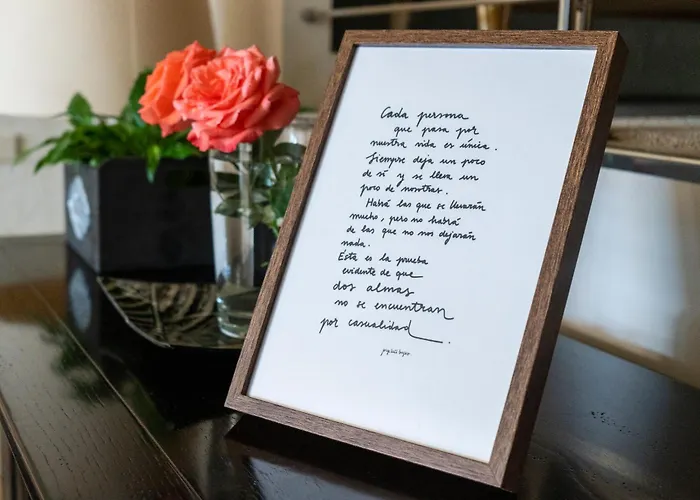 Cada persona
que pasa por
nuestra vida es única.
Siempre deja un poco
de sí y se lleva un
poco de nosotras.
Habrá las que se llevarán
mucho, pero no habrá
de las que no nos dejarán
nada.
Esta es la prueba
evidente de que
dos almas
no se encuentran
por casualidad.
jorge luis borges